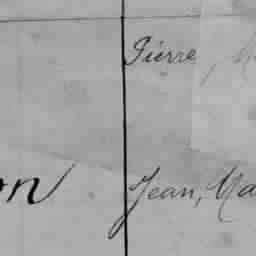 Pierre,
on Jean, Ma